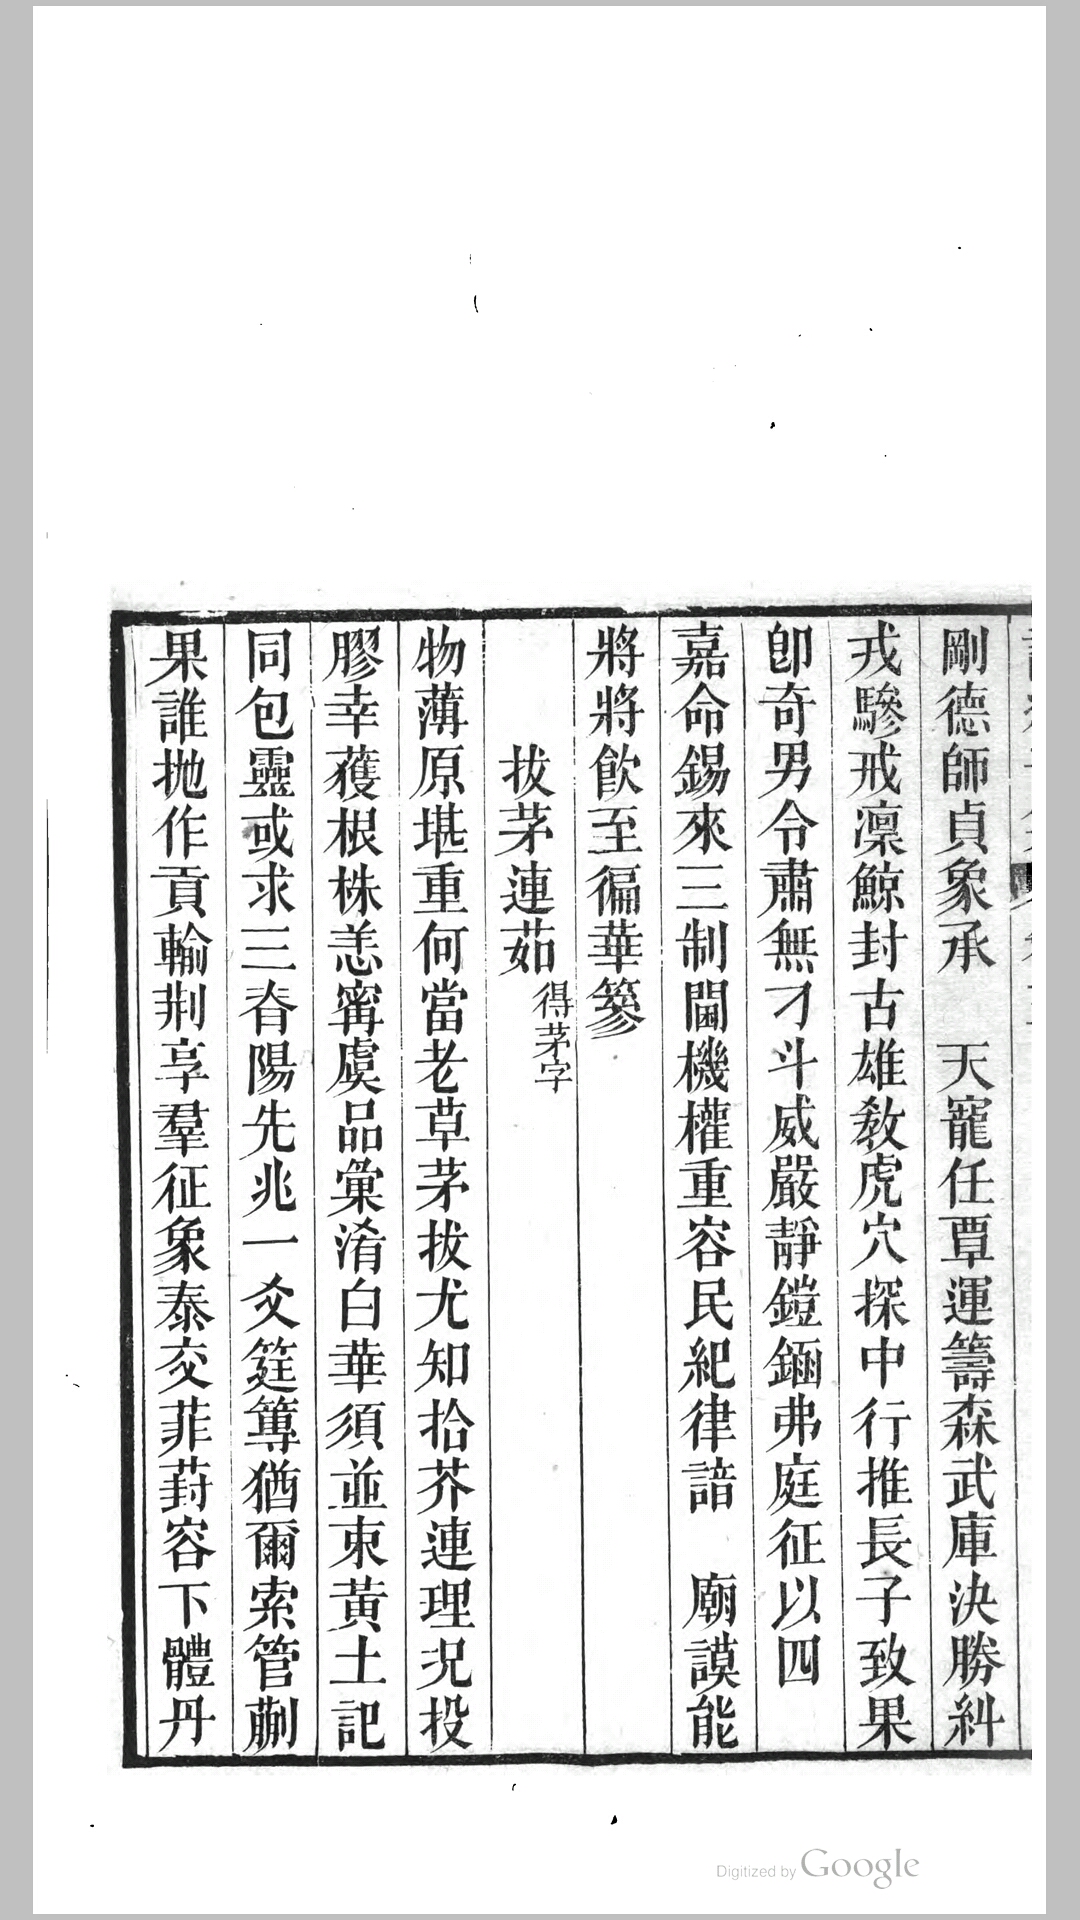 剛德師貞象承　天寵任覃運籌森武庫決勝糾
戎驂戒凛鯨封古雄敎虎穴探中行推長子致果
卽奇男令肅無刁斗威嚴靜鎧鍤弗庭征以四
嘉命錫來三制閫機權重容民紀律諳　廟謨能
將將飮至徧華簪
拔茅連茹得茅字
物薄原堪重何當老草茅拔尤知拾芥連理況投
膠幸蒦根株恙甯虞品彙淆白華須並束黃土記
同包靈或求三脊陽先兆一爻筳篿猶爾索管蒯
果誰抛作貢輸荆享羣征象泰交菲葑容下體丹
Digitized by Google